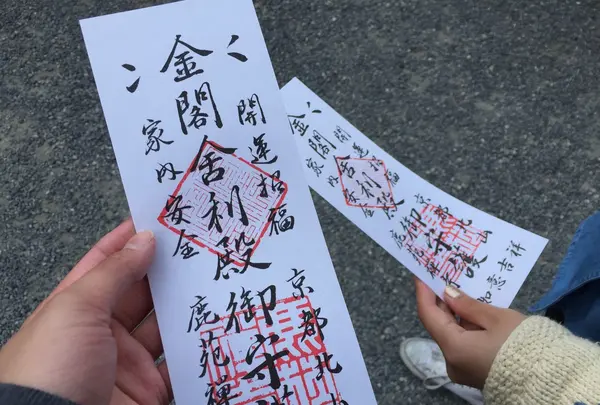 開運招福
京都北
金閣舎利殿御守
家内安全
鹿苑禅
開運招福
京都
金閣舎利殿御守護
家内安全
鹿
吉祥